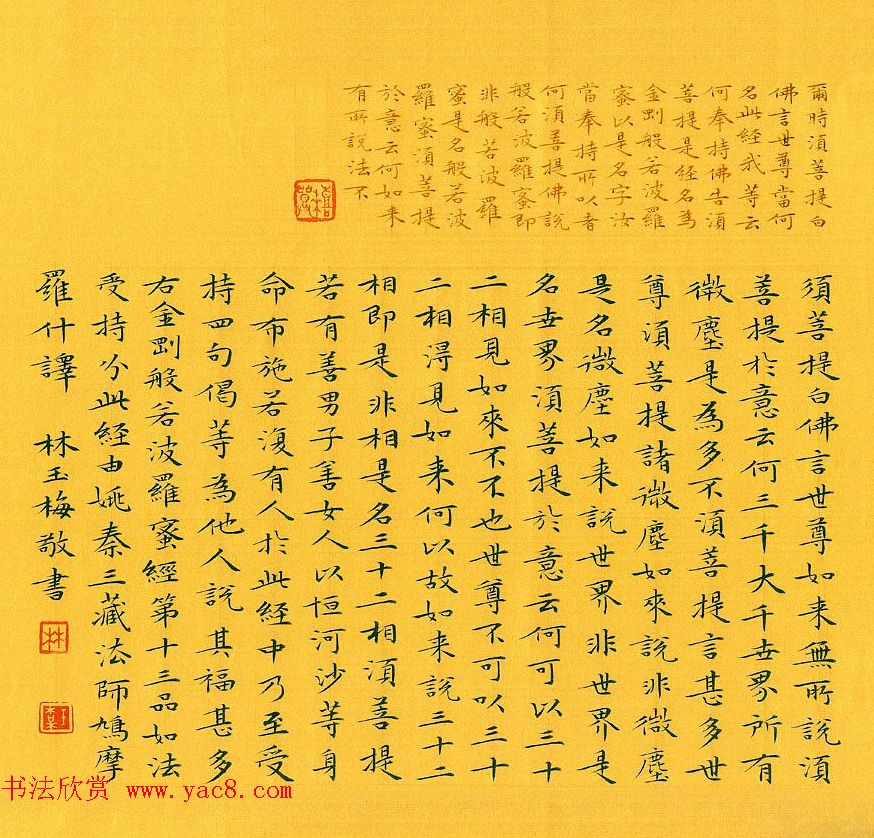 爾時須菩提白
佛言世尊當何
名此経我等云
何奉持佛告須
菩提是経名為
金剛般若波羅
蜜以是名字汝
當奉持所以者
何須菩提佛說
般若波羅蜜即
非般若波羅
蜜是名般若波
羅蜜須菩提
於意云何如来
有所說法不
須菩提白佛言世尊如来無所說須
菩提於意云何三千大千世界所有
微塵是為多不須菩提言甚多世
尊須菩提諸微塵如來說非微塵
是名微塵如来說世界非世界是
名世界須菩提於意云何可以三十
二相見如來不不也世尊不可以三十
二相得見如来何以故如来說三十二
相即是非相是名三十二相須菩提
若有善男子善女人以恒河沙等身
命布施若復有人於此経中乃至受
持四句偈等為他人說其福甚多
右金剛般若波羅蜜經第十三品如法
受持分此経由姚秦三藏法師鳩摩
羅什譯 林玉梅敬書
林
书法欣赏 www.yac8.com